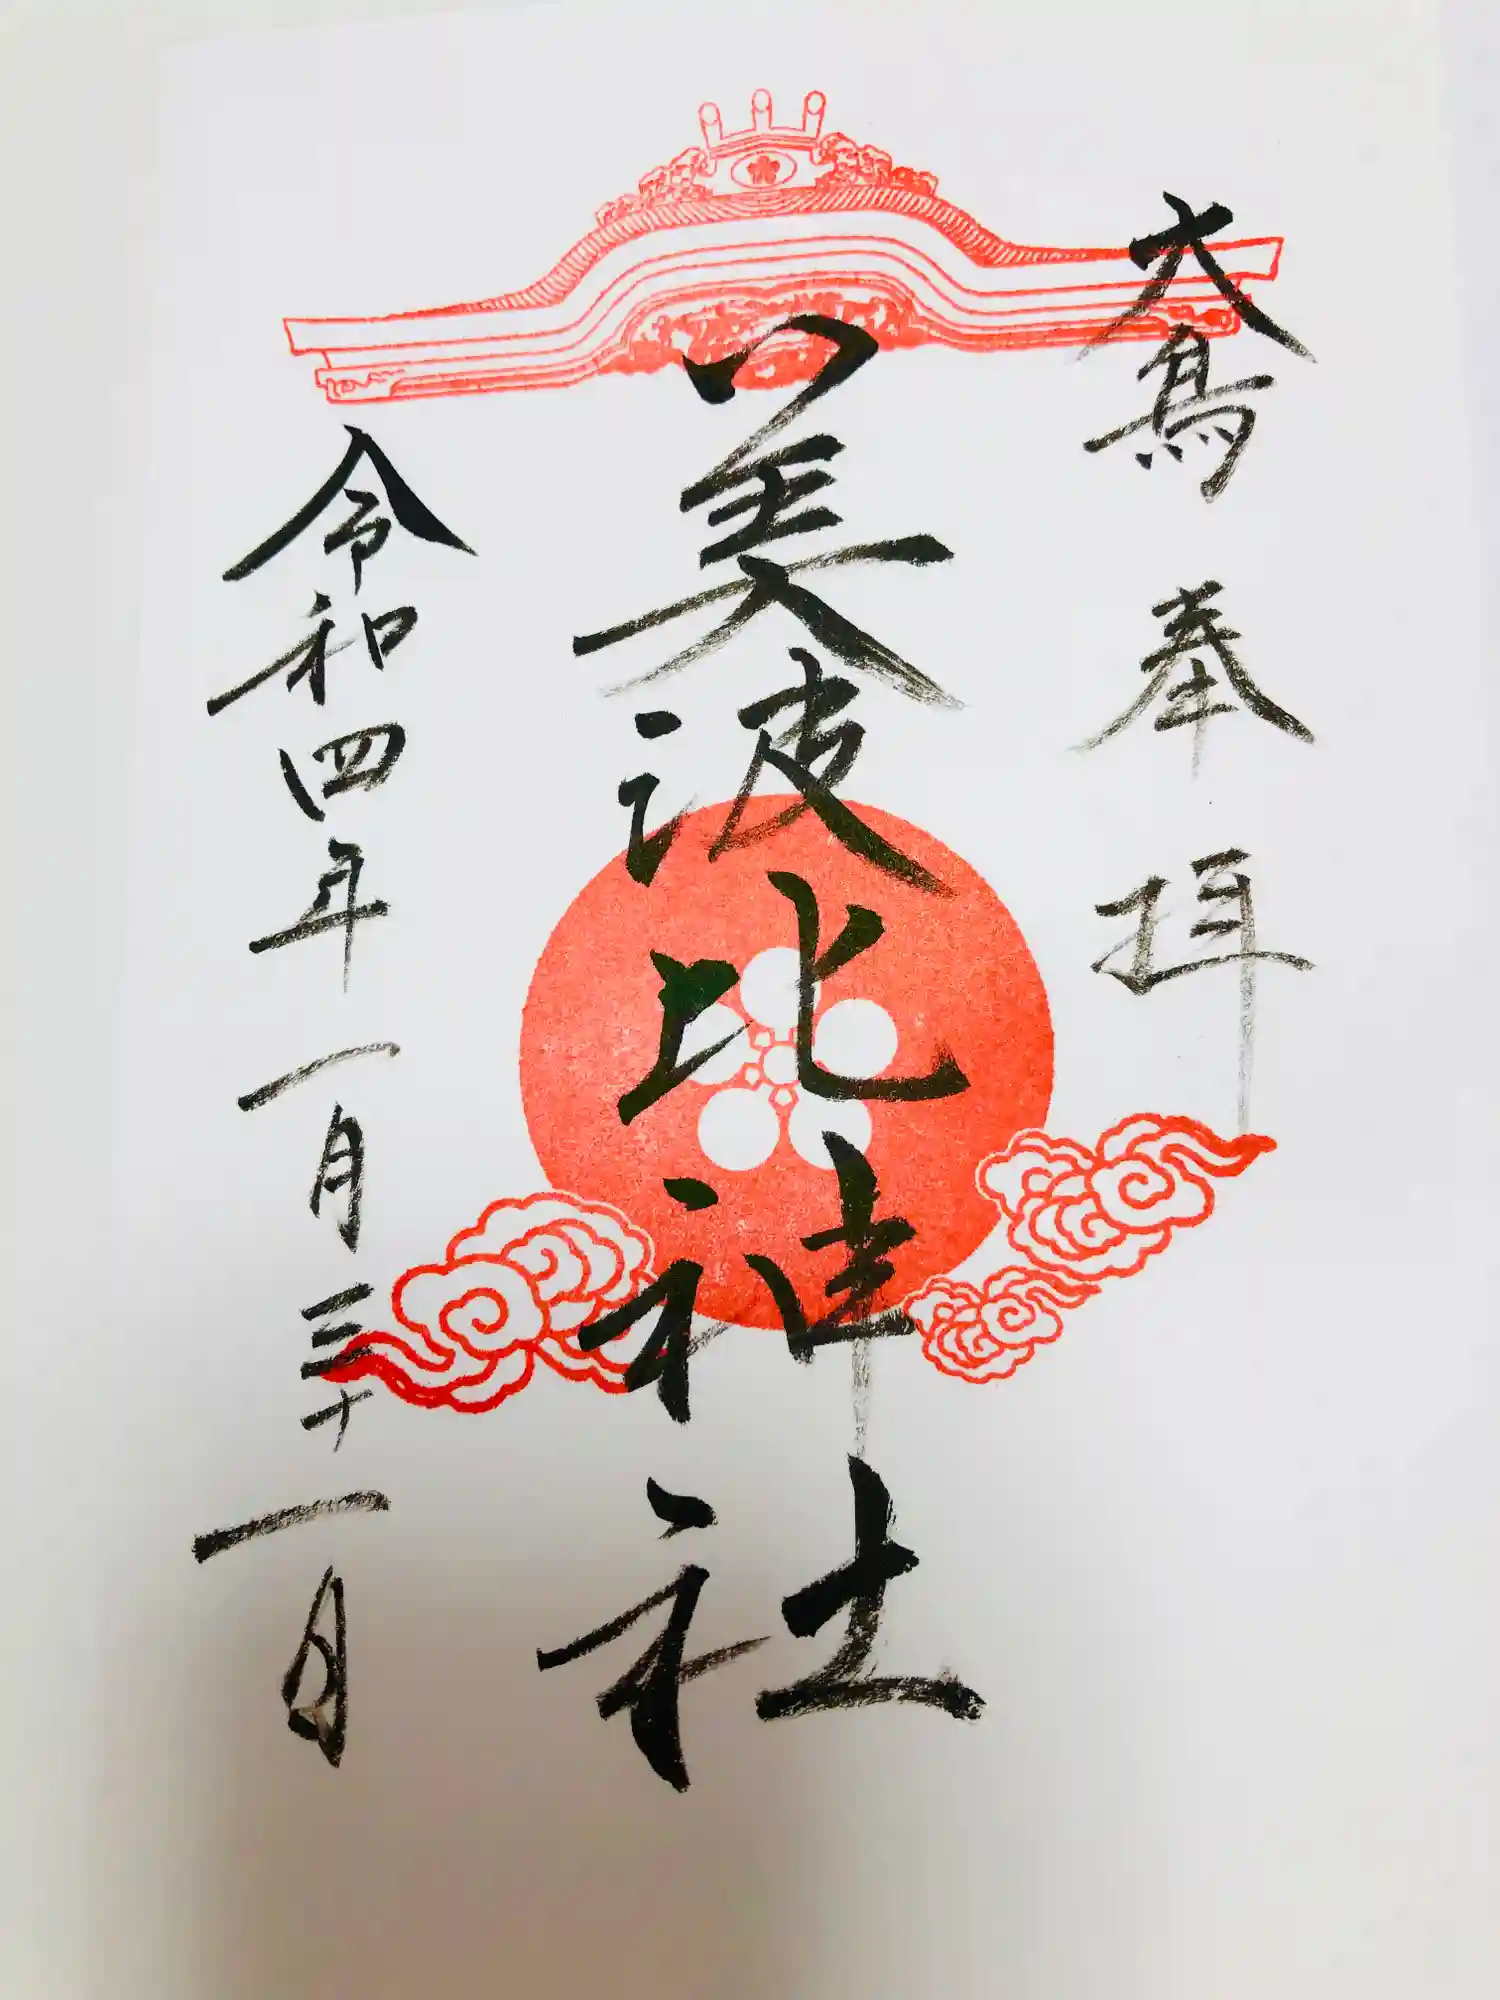 大鳥 奉拝
美波比神社
令和四年一月三十一日